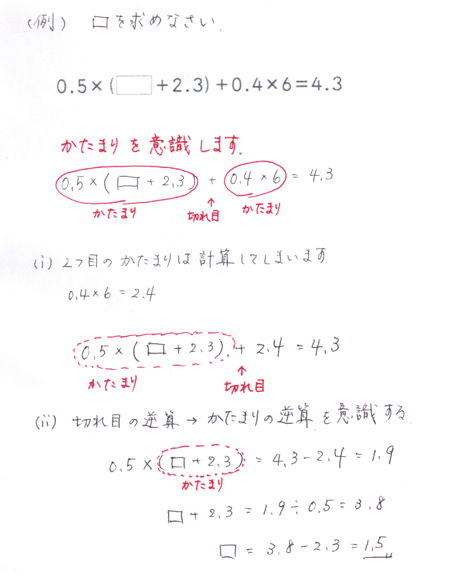 (例) □を求めなさい.
0.5×(□+2.3)+0.4×6=4.3
かたまりを意識します.
0.5×(□+2.3) + 0.4×6 = 4.3
かたまり ↑ かたまり
切れ目
(i) 2つ目のかたまりは計算してしまいます.
0.4×6 = 2.4
0.5×(□+2.3) + 2.4 = 4.3
かたまり ↑
切れ目
(ii) 切れ目の逆算→かたまりの逆算を意識する.
0.5×(□+2.3) = 4.3-2.4 = 1.9
かたまり
□+2.3 = 1.9÷0.5 = 3.8
□ = 3.8-2.3 = 1.5